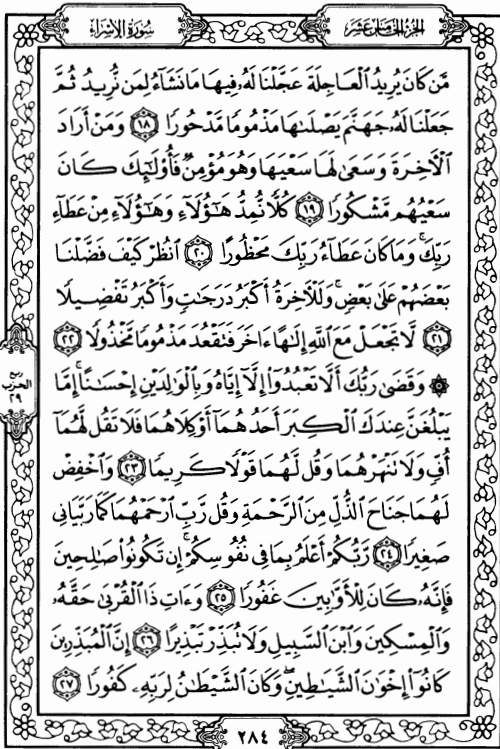 سُورَةُ الإِسْرَاءِ
الجُزْءُ الخَامِسَ عَشَرَ
مَّن كَانَ يُرِيدُ ٱلْعَاجِلَةَ عَجَّلْنَا لَهُۥ فِيهَا مَا نَشَآءُ لِمَن نُّرِيدُ ثُمَّ
جَعَلْنَا لَهُۥ جَهَنَّمَ يَصْلَىٰهَا مَذْمُومًا مَّدْحُورًا ١٨ وَمَنْ أَرَادَ
ٱلْـَٔاخِرَةَ وَسَعَىٰ لَهَا سَعْيَهَا وَهُوَ مُؤْمِنٌ فَأُو۟لَـٰٓئِكَ كَانَ
سَعْيُهُم مَّشْكُورًا ١٩ كُلًّا نُّمِدُّ هَـٰٓؤُلَآءِ وَهَـٰٓؤُلَآءِ مِنْ عَطَآءِ
رَبِّكَ ۚ وَمَا كَانَ عَطَآءُ رَبِّكَ مَحْظُورًا ٢٠ ٱنظُرْ كَيْفَ فَضَّلْنَا
بَعْضَهُمْ عَلَىٰ بَعْضٍ ۚ وَلَلْـَٔاخِرَةُ أَكْبَرُ دَرَجَـٰتٍ وَأَكْبَرُ تَفْضِيلًا
٢١ لَّا تَجْعَلْ مَعَ ٱللَّهِ إِلَـٰهًا ءَاخَرَ فَتَقْعُدَ مَذْمُومًا مَّخْذُولًا ٢٢
۞ وَقَضَىٰ رَبُّكَ أَلَّا تَعْبُدُوٓا۟ إِلَّآ إِيَّاهُ وَبِٱلْوَٰلِدَيْنِ إِحْسَـٰنًا ۚ إِمَّا
يَبْلُغَنَّ عِندَكَ ٱلْكِبَرَ أَحَدُهُمَآ أَوْ كِلَاهُمَا فَلَا تَقُل لَّهُمَآ
أُفٍّ وَلَا تَنْهَرْهُمَا وَقُل لَّهُمَا قَوْلًا كَرِيمًا ٢٣ وَٱخْفِضْ
لَهُمَا جَنَاحَ ٱلذُّلِّ مِنَ ٱلرَّحْمَةِ وَقُل رَّبِّ ٱرْحَمْهُمَا كَمَا رَبَّيَانِى
صَغِيرًا ٢٤ رَّبُّكُمْ أَعْلَمُ بِمَا فِى نُفُوسِكُمْ ۚ إِن تَكُونُوا۟ صَـٰلِحِينَ
فَإِنَّهُۥ كَانَ لِلْأَوَّٰبِينَ غَفُورًا ٢٥ وَءَاتِ ذَا ٱلْقُرْبَىٰ حَقَّهُۥ
وَٱلْمِسْكِينَ وَٱبْنَ ٱلسَّبِيلِ وَلَا تُبَذِّرْ تَبْذِيرًا ٢٦ إِنَّ ٱلْمُبَذِّرِينَ
كَانُوٓا۟ إِخْوَٰنَ ٱلشَّيَـٰطِينِ ۖ وَكَانَ ٱلشَّيْطَـٰنُ لِرَبِّهِۦ كَفُورًا ٢٧
ربع
الحزب
٢٩
٢٨٤